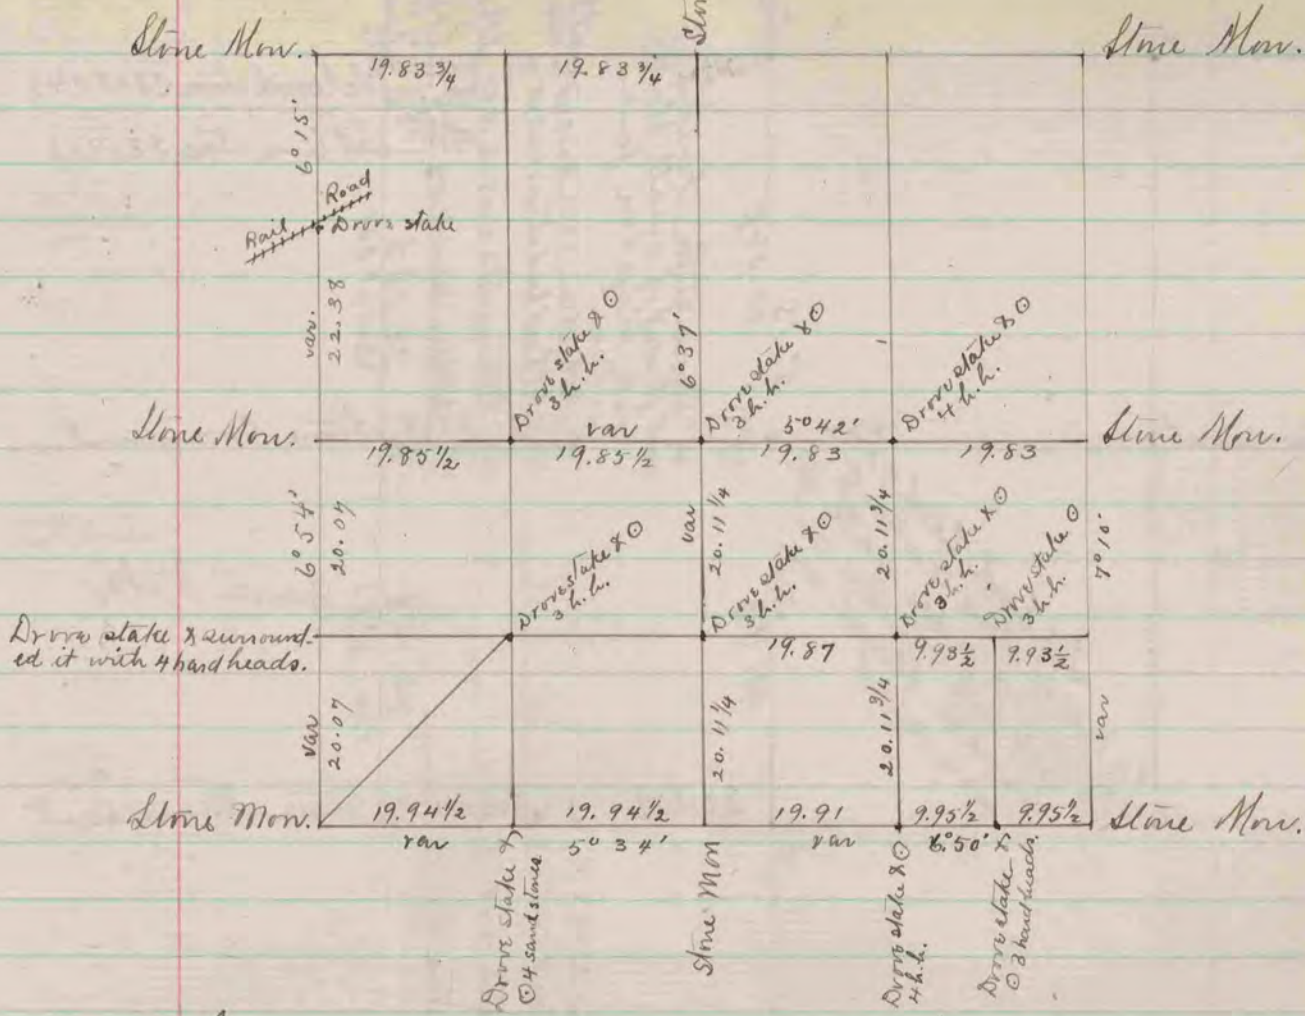 Stone Mon.
Stone Mon.
19.83 3/4
19.83 3/4
6° 15'
Rail Road
Drove stake
var. 22.38
Drove stake & ⊙
3 h.h.
6° 37'
Drove stake & ⊙
3 h.h.
Drove stake & ⊙
4 h.h.
Stone Mon.
var
5° 42'
Stone Mon.
19.85 1/2
19.85 1/2
19.83
19.83
6° 54'
20.07
Drove stake & ⊙
3 h.h.
var
20.11 1/4
Drove stake & ⊙
3 h.h.
20.11 3/4
Drove stake & ⊙
3 h.h.
Drove stake ⊙
3 h.h.
7° 10'
Drove stake & surround-
ed it with 4 hard heads.
19.87
9.93 1/2
9.93 1/2
var
20.07
20.11 1/4
20.11 3/4
var
Stone Mon.
19.94 1/2
19.94 1/2
19.91
9.95 1/2
9.95 1/2
Stone Mon.
var
5° 34'
var
6° 50'
Drove stake &
⊙ 4 sand stones
Stone Mon
Drove stake & ⊙
4 h.h.
Drove stake &
⊙ 3 hard heads.